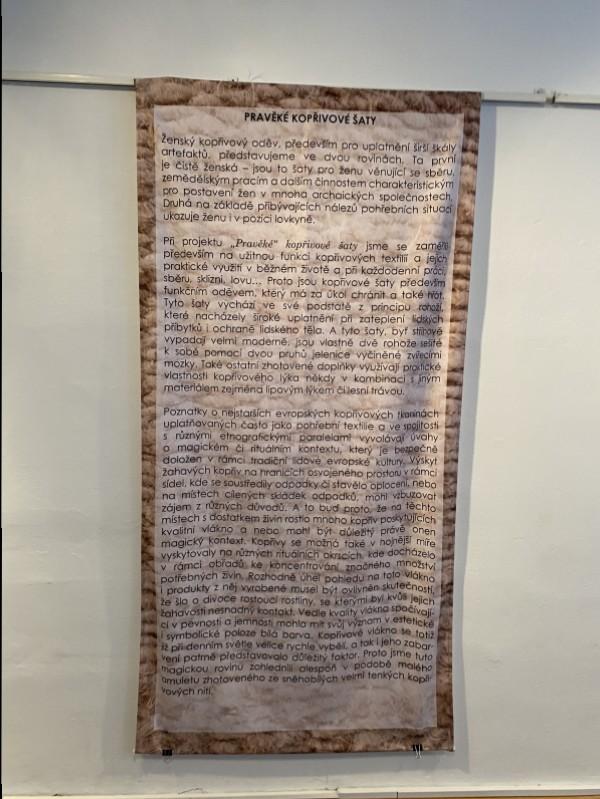 PRAVĚKÉ KOPŘIVOVÉ ŠATY
Ženský kopřivový oděv, především pro uplatnění širší škály
artefaktů, představujeme ve dvou rovinách. Ta první
je čistě ženská – jsou to šaty pro ženu věnující se sběru,
zemědělským pracím a dalším činnostem charakteristickým
pro postavení žen v mnoha archaických společnostech.
Druhá na základě přibývajících nálezů pohřebních situací
ukazuje ženu i v pozici lovkyně.
Při projektu „Pravěké" kopřivové šaty jsme se zaměřili
především na užitnou funkci kopřivových textilií a jejich
praktické využití v běžném životě a při každodenní práci,
sběru, sklizni, lovu... Proto jsou kopřivové šaty především
funkčním oděvem, který má za úkol chránit a také hřát.
Tyto šaty vychází ve své podstatě z principu rohoží,
které nacházely široké uplatnění při zateplení lidských
příbytků i ochraně lidského těla. A tyto šaty, byť střihově
vypadají velmi moderně, jsou vlastně dvě rohože sešité
k sobě pomocí dvou pruhů jelenice vyčiněné zvířecími
mozky. Také ostatní zhotovené doplňky využívají praktické
vlastnosti kopřivového lýka někdy v kombinaci s jiným
materiálem zejména lipovým lýkem či lesní trávou.
Poznatky o nejstarších evropských kopřivových tkaninách
uplatňovaných často jako pohřební textilie a ve spojitosti
s různými etnografickými paralelami vyvolávají úvahy
o magickém či rituálním kontextu, který je bezpečně
doložen v rámci tradiční lidové evropské kultury. Výskyt
žahavých kopřiv na hranicích osvojeného prostoru v rámci
sídel, kde se soustředily odpadky či stavělo oplocení, nebo
na místech cílených skládek odpadků, mohl vzbuzovat
zájem z různých důvodů. A to buď proto, že na těchto
místech s dostatkem živin rostlo mnoho kopřiv poskytujících
kvalitní vlákno a nebo mohl být důležitý právě onen
magický kontext. Kopřivy se možná také v hojnější míře
vyskytovaly na různých rituálních okrscích, kde docházelo
v rámci obřadů ke koncentrování značného množství
potřebných živin. Rozhodně úhel pohledu na toto vlákno
i produkty z něj vyrobené musel být ovlivněn skutečností,
že šlo o divoce rostoucí rostliny, se kterými byl kvůli jejich
žahavosti nesnadný kontakt. Vedle kvality vlákna spočívají-
cí v pevnosti a jemnosti mohla mít svůj význam v estetické
i symbolické poloze bílá barva. Kopřivové vlákno se totiž
již při denním světle velice rychle vybělí, a tak i jeho zabar-
vení patrně představovalo důležitý faktor. Proto jsme tuto
magickou rovinu zohlednili alespoň v podobě malého
amuletu zhotoveného ze sněhobílých velmi tenkých kopři-
vových nití.